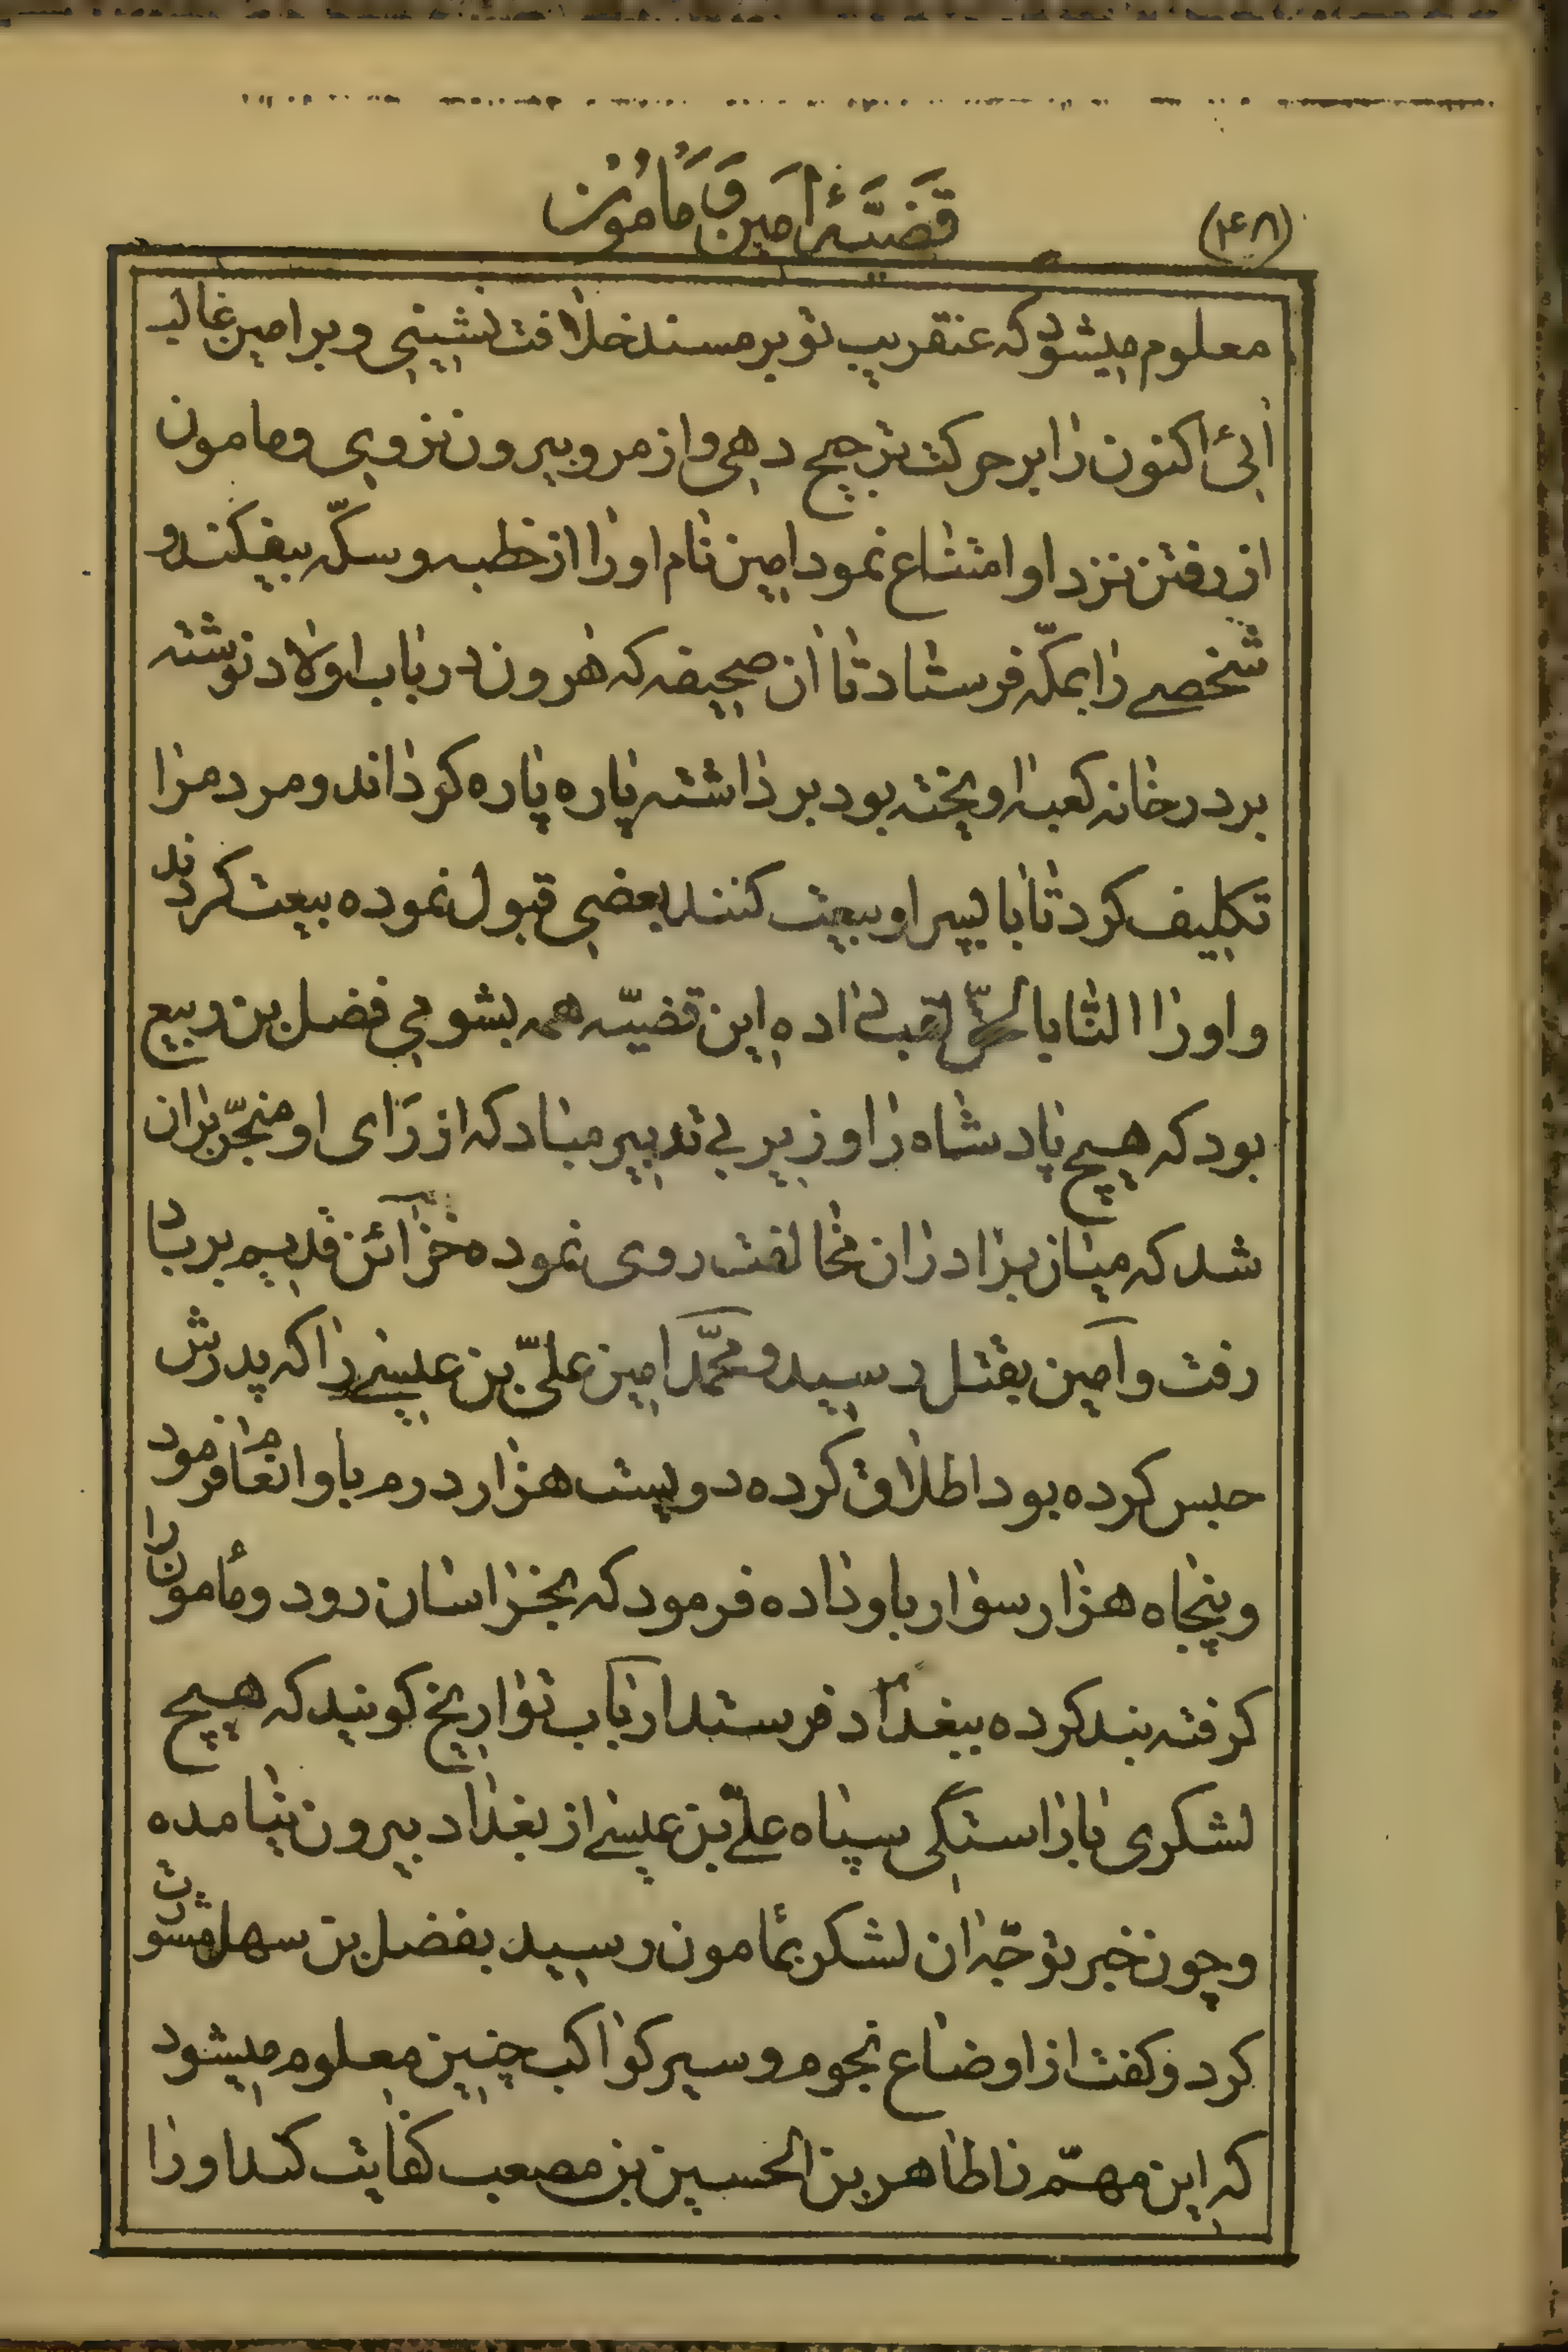 (۲۶۸)
قَضَیّۀ اَمین وَ مَامُون
معلوم میشود که عنقریب تو بر مسند خلافت نشینی و بر امین غالب
آئی اکنون را بر حرکت ترجیح دهی و از مرو بیرون نروی و مامون
از رفتن نزد او امتناع نمود امین نام او را از خطبه و سکّه بیفکند و
شخصے را بمکّه فرستاد تا آن صحیفه که هرون در باب اولاد نوشته
بر در خانه کعبه اویخته بود برداشته پاره پاره کرداند و مردم را
تکلیف کرد تا با پسر او بیعت کنند بعضی قبول نموده بیعت کردند
و او را الناباالحق لقب داده این قضیّه همه بشومی فضل بن ربیع
بود که هیچ پادشاه را وزیر بی تدبیر مباد که از رَای او منجّر بران
شد که میان برادران مخالفت روی نموده خزآئن قدیم بر باد
رفت و آمین بقتل رسید و محمّد امین علیّ بن عیسی را که پدرش
حبس کرده بود اطلاق کرده دویست هزار درم باو انعام فرمود
و پنجاه هزار سوار باو داده فرمود که بخراسان رود و مأمون را
کرفته بند کرده ببغداد فرستد ارباب تواریخ کویند که هیچ
لشکری باراستگی سپاه علیّ بن عیسی از بغداد بیرون نیامده
و چون خبر توجّه ان لشکر بمأمون رسید بفضل بن سهل مشورت
کرد و کفت از اوضاع نجوم و سیر کواکب چنین معلوم میشود
که این مهمّ را طاهر بن الحسین بن مصعب کفایت کند او را